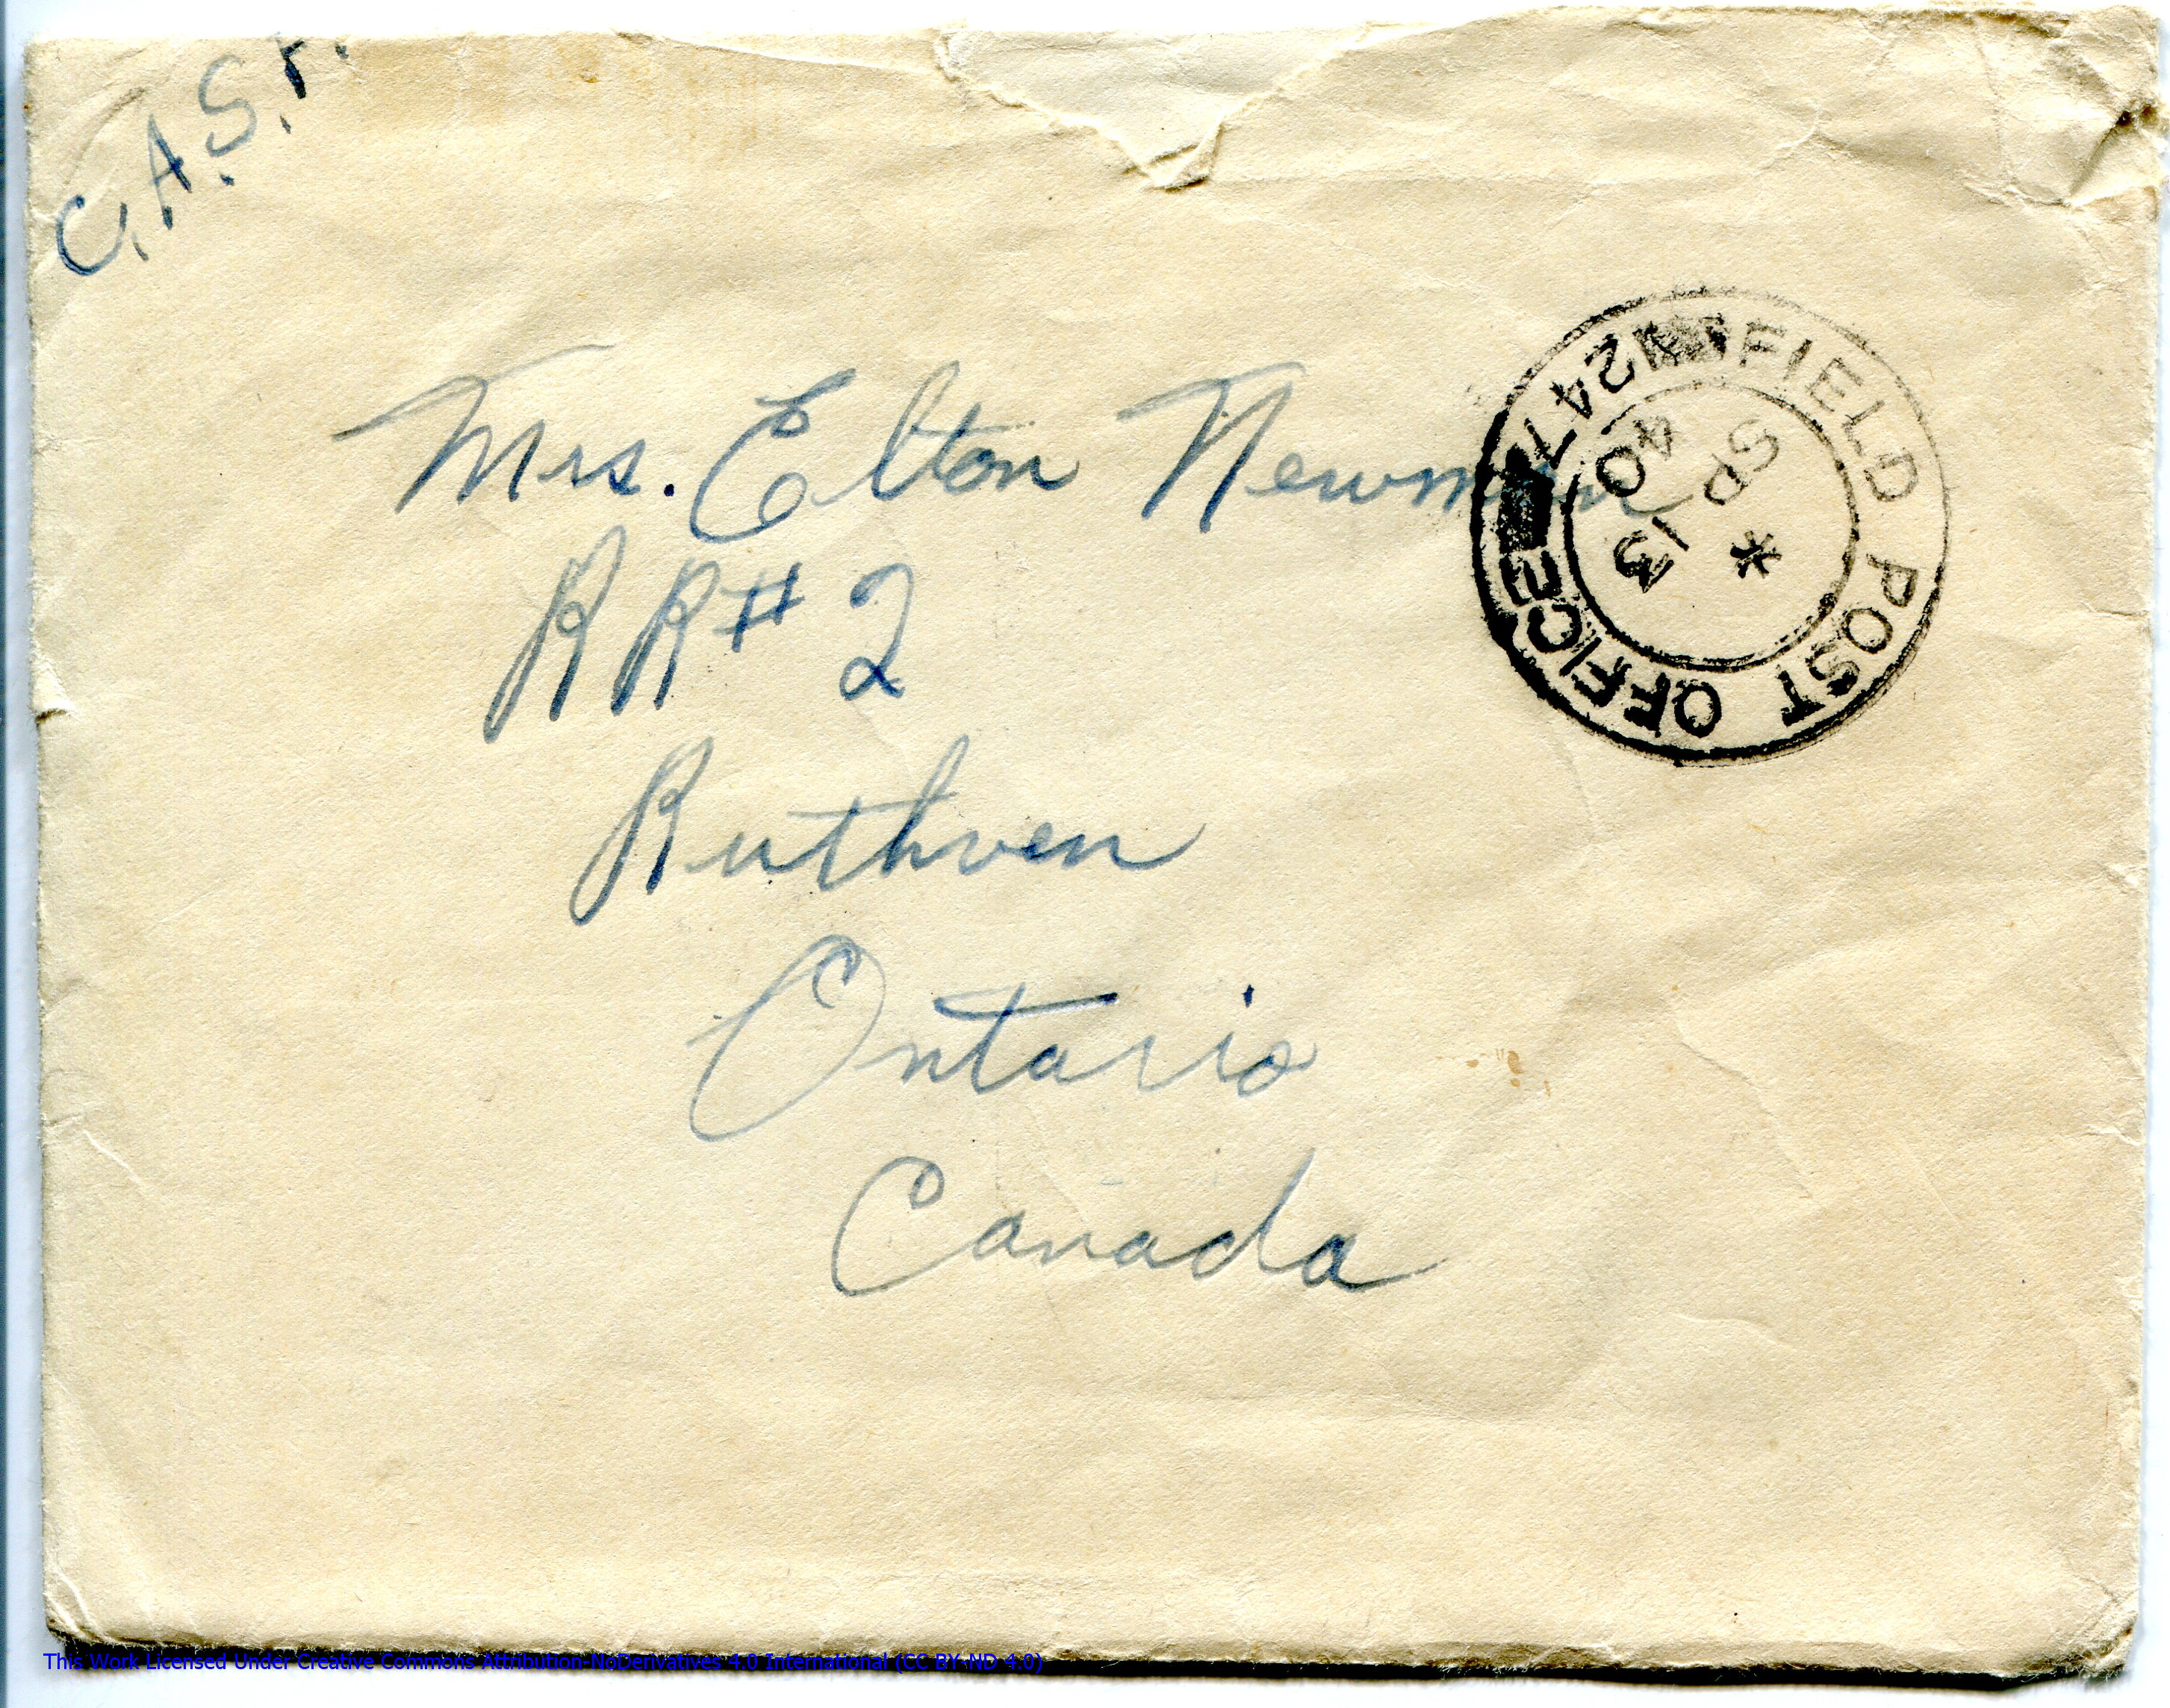 C.A.S.F.
Mrs. Elton Newman
RR# 2
Ruthven
Ontario
Canada
FIELD POST OFFICE 247
*
13
SP
40
This Work Licensed Under Creative Commons Attribution-NoDerivatives 4.0 International (CC BY-ND 4.0)